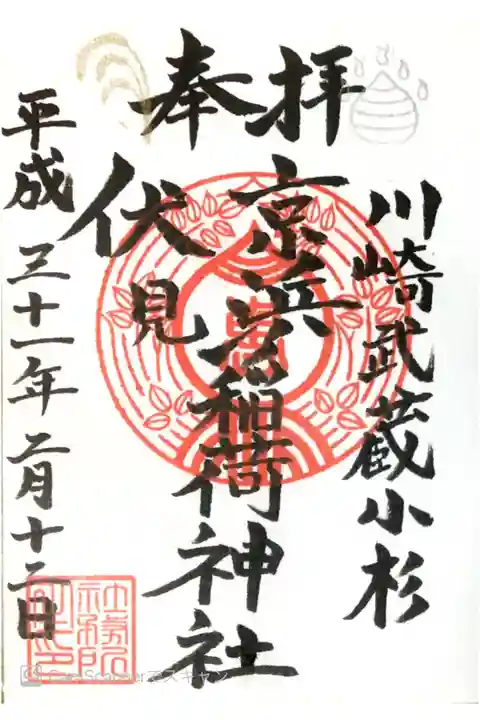 奉拝
川崎武蔵小杉
京浜
伏見
稲荷神社
平成三十一年二月十二日
社務所之印
CamScannerでスキャン